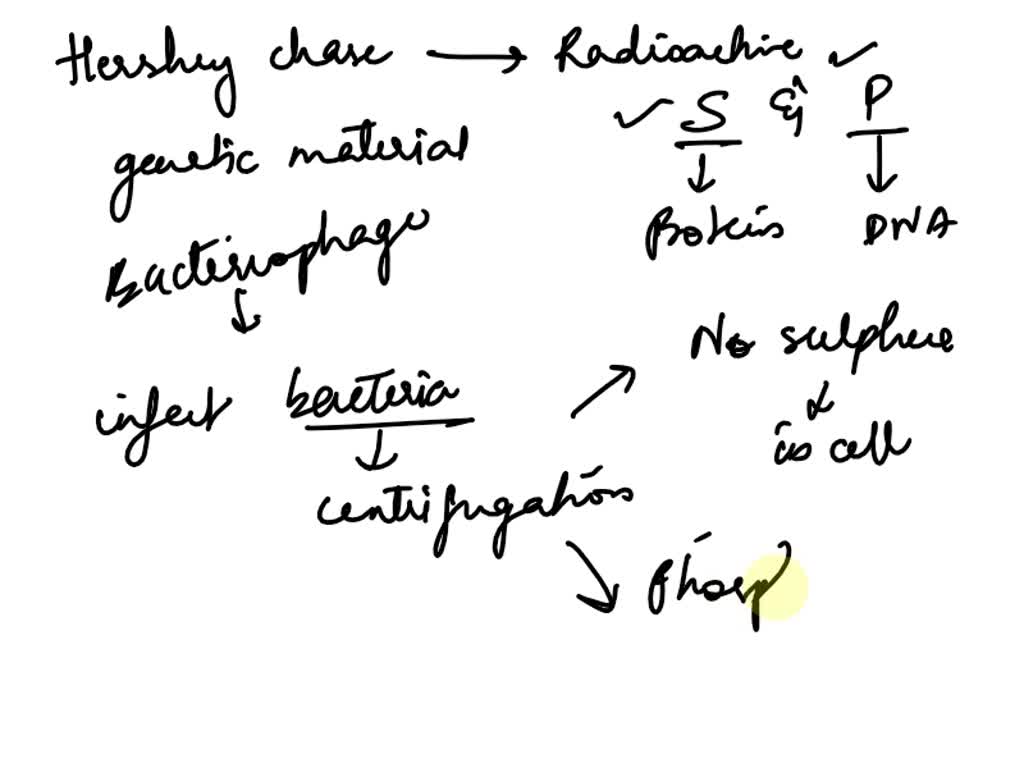 Hershey chase → Radioactive ✓
✓ S & P
genetic material
↓ ↓
Protein DNA
Bacteriophage
↓
No sulphur
infect bacteria
↓
in cell
centrifugation
Phosp